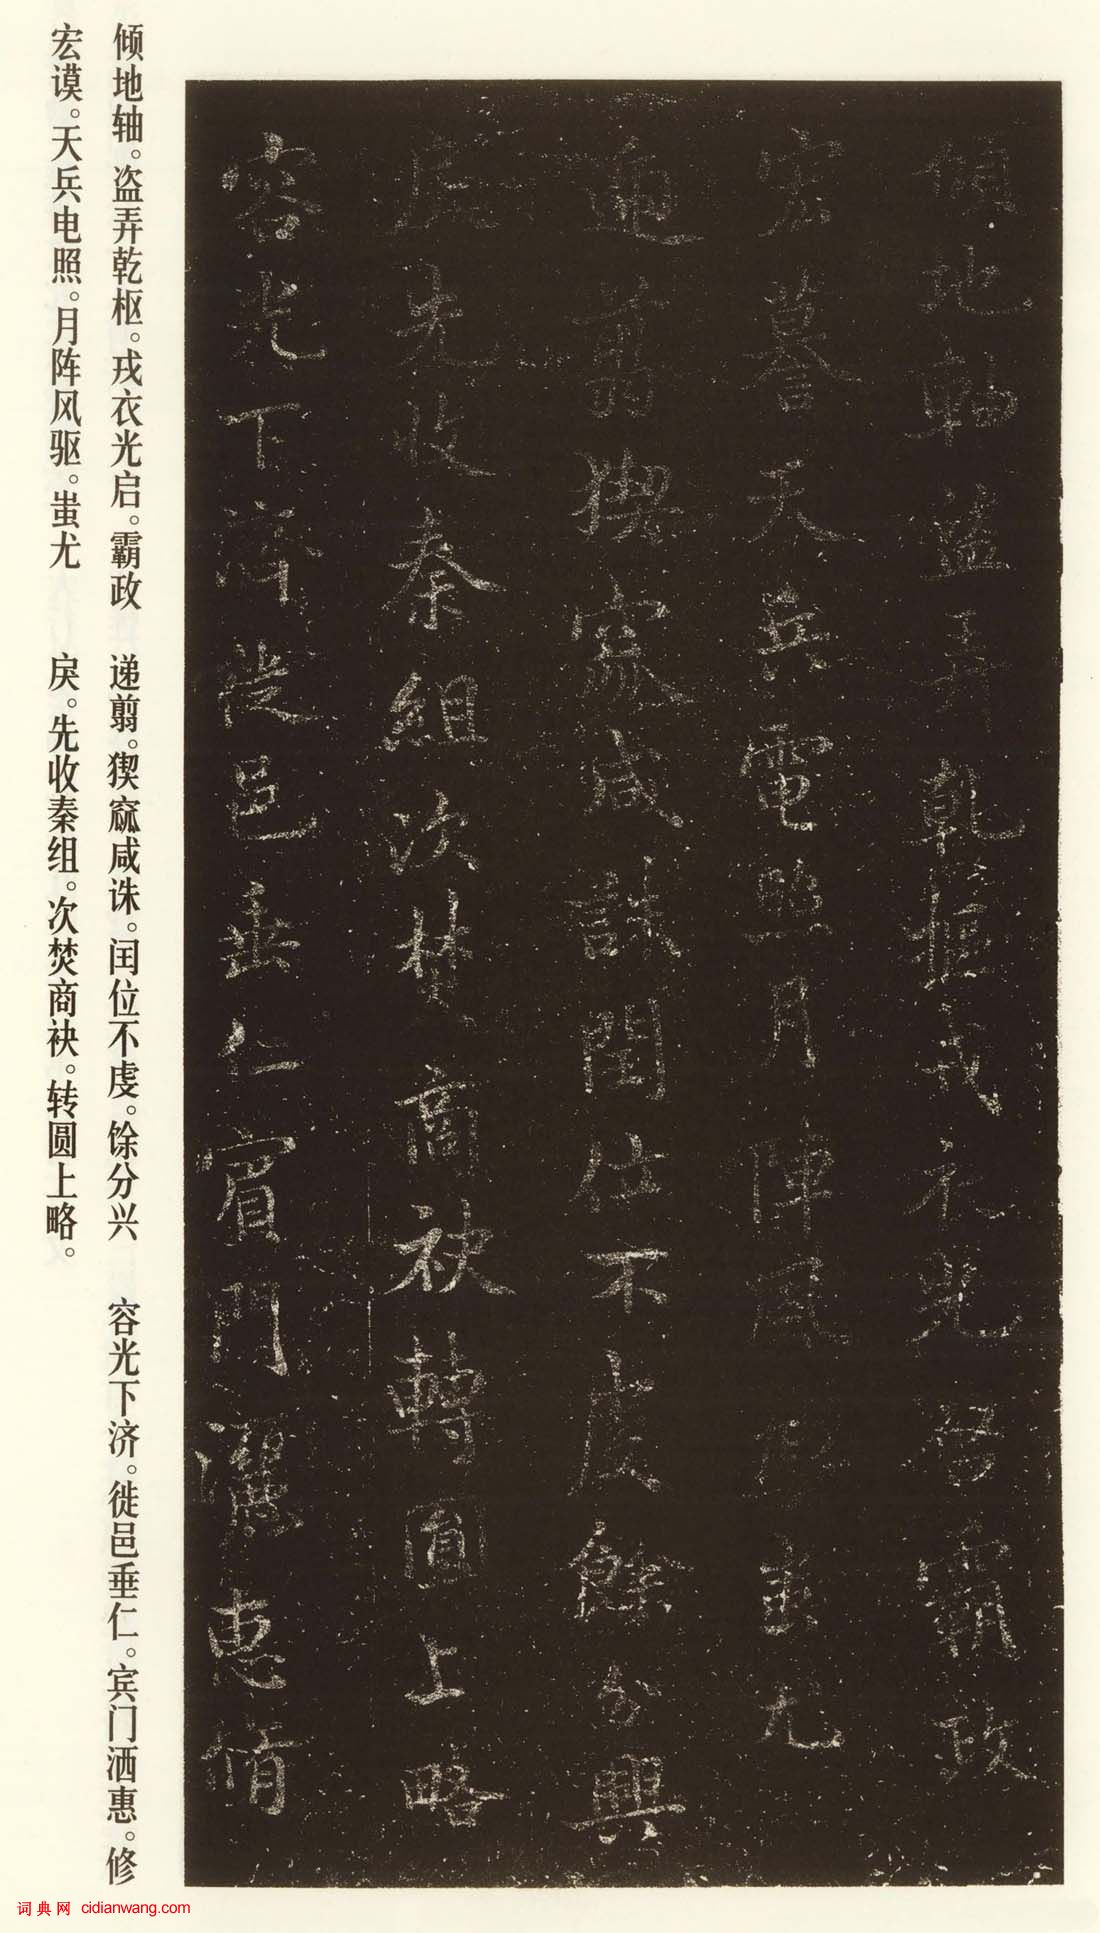 傾地軸盜弄乾樞戎衣光啓霸政
宏謩天兵電照月陣風驅蚩尤
遞翦猰窳咸誅閏位不虔餘分興
戾先收秦組次焚商袂轉圓上略
容光下濟徙邑垂仁賓門灑惠脩
倾地轴。盗弄乾枢。戎衣光启。霸政
宏谟。天兵电照。月阵风驱。蚩尤
递翦。猰窳咸诛。闰位不虔。馀分兴
戾。先收秦组。次焚商袂。转圆上略。
容光下济。徙邑垂仁。宾门洒惠。修
词典网 cidianwang.com